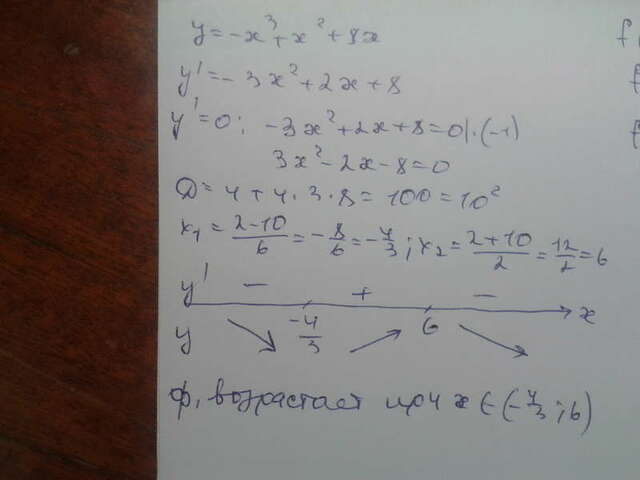 y = -x³ + x² + 8x
y' = -3x² + 2x + 8
y' = 0; -3x² + 2x + 8 = 0 | · (-1)
3x² - 2x - 8 = 0
D = 4 + 4 · 3 · 8 = 100 = 10²
x₁ = (2-10)/6 = -8/6 = -4/3; x₂ = (2+10)/2 = 12/2 = 6
y' - + -
-4/3 6 x
y
ф. возрастает при x ∈ (-4/3; 6)
f
f
f